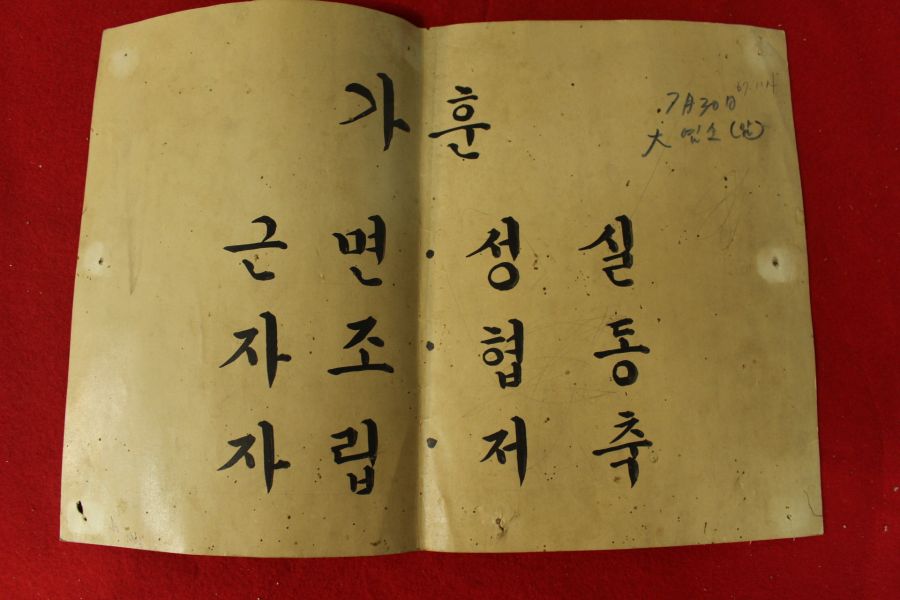 가훈
7月30日
大 염소 (남)
근면·성실
자조·협동
자립·저축